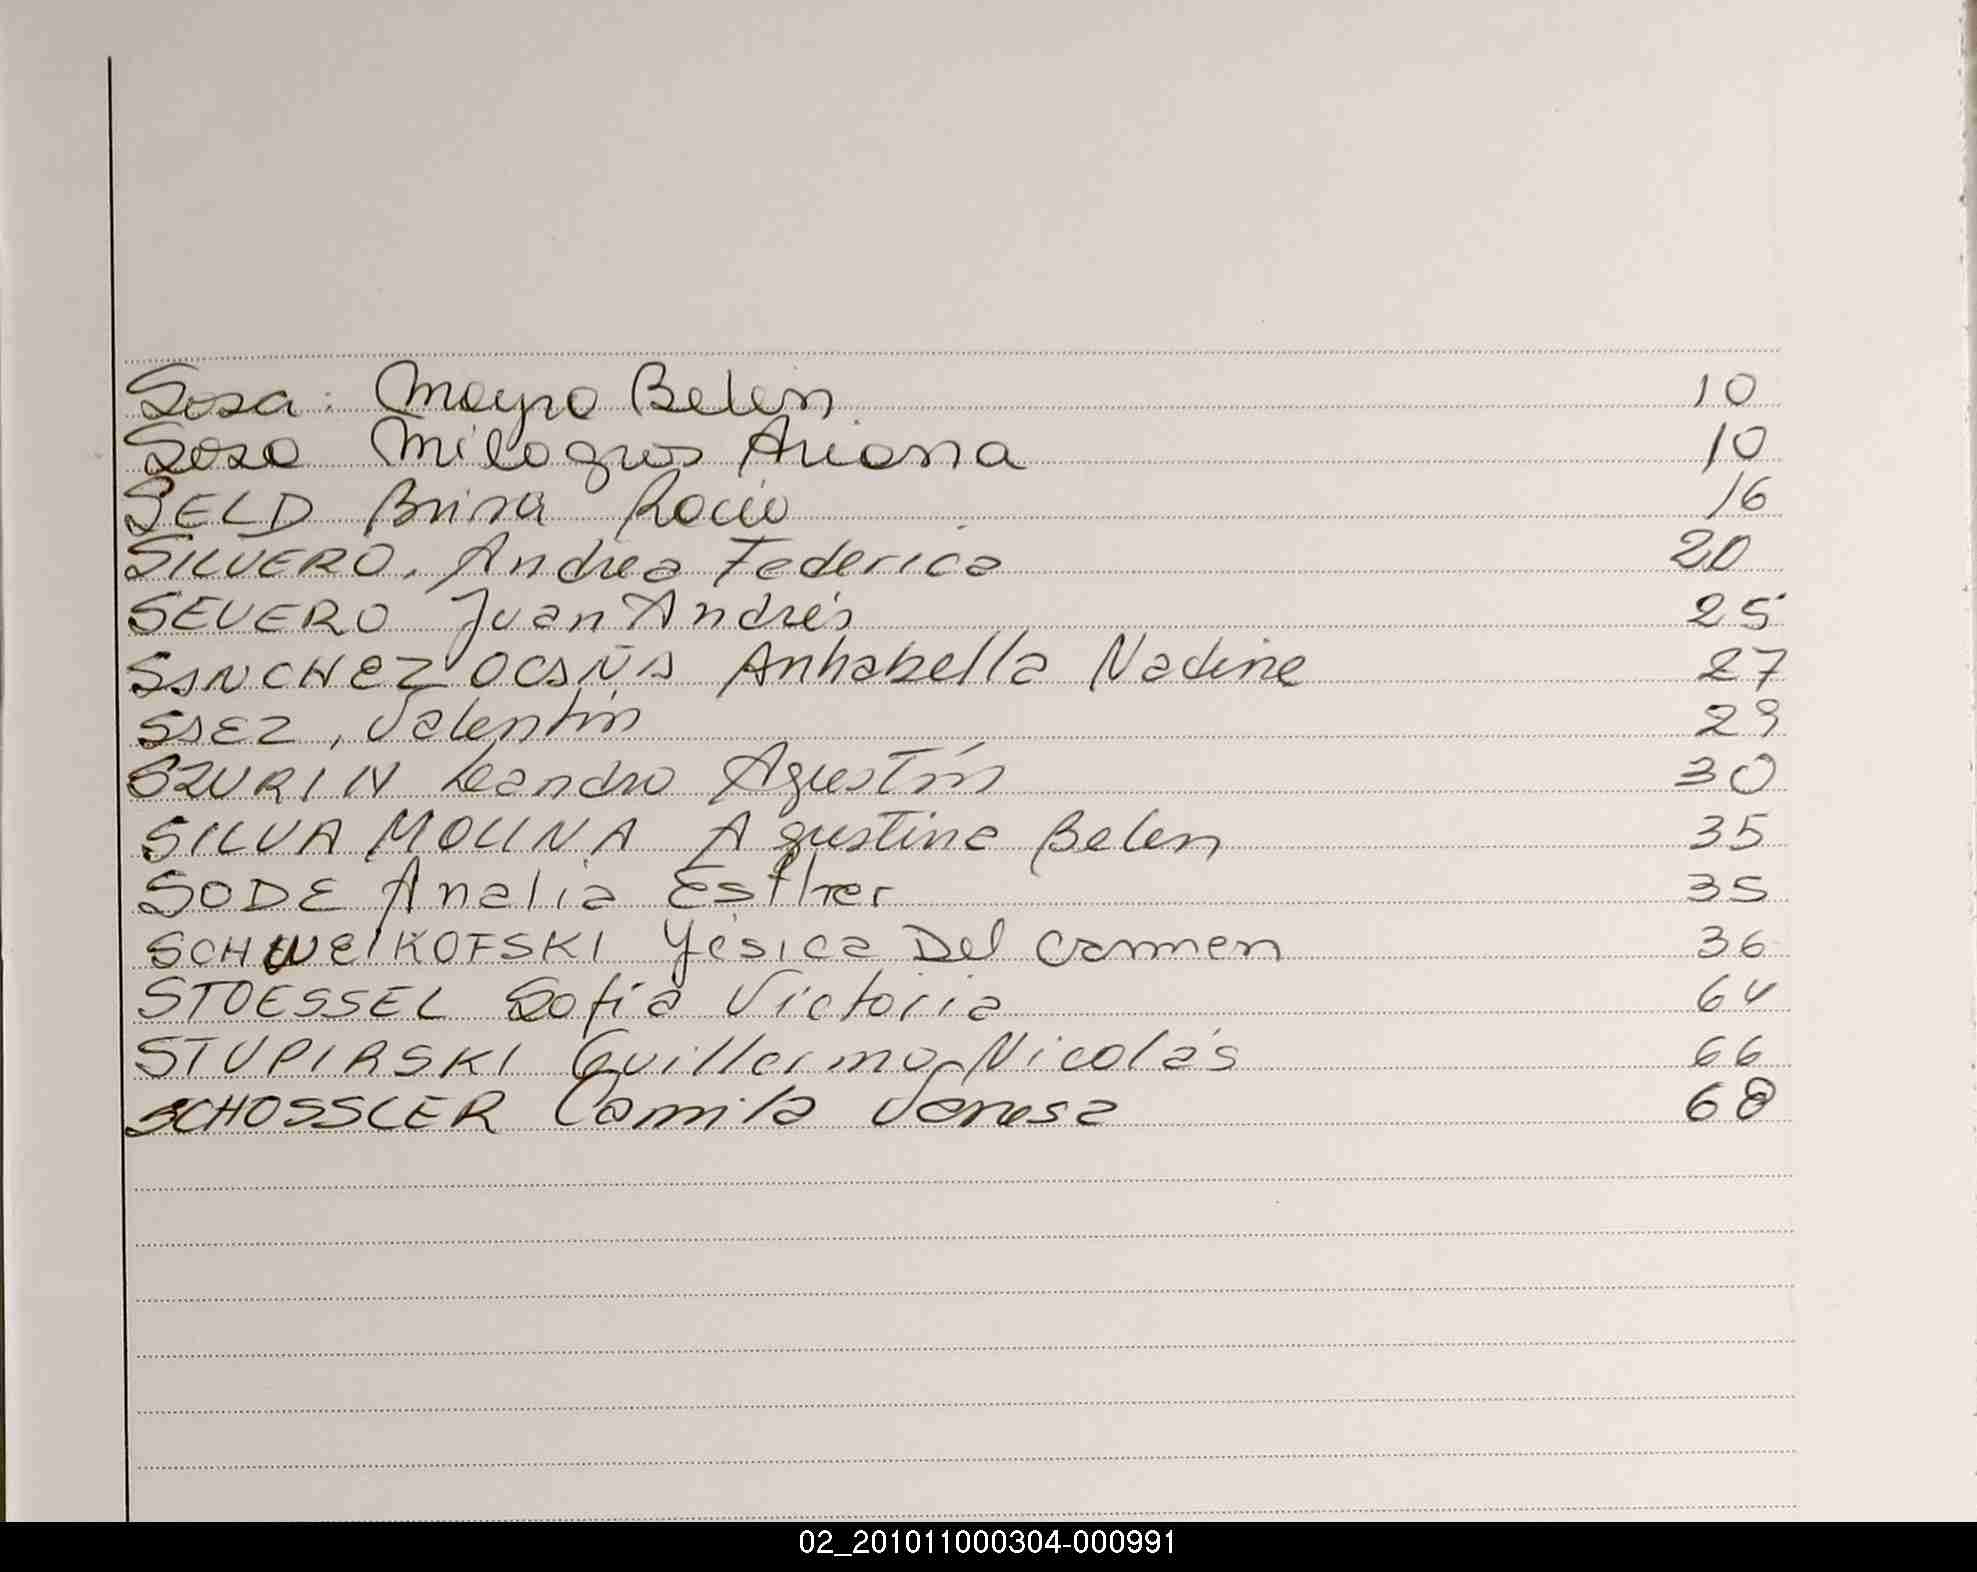 Sosa: Mayra Belen 10
Sosa Milagros Ariana 10
SELD Brisa Rocio 16
SILVERO, Andrea Federica 20
SEVERO Juan Andrés 25
SANCHEZ OCAÑA Anhabella Nadine 27
SAEZ, Valentín 29
SZURIN Leandro Agustín 30
SILVA MOLINA Agustina Belen 35
SODE Analia Esther 35
SCHWEIKOFSKI Yésica Del Carmen 36
STOESSEL Sofía Victoria 64
STUPIRSKI Guillermo Nicolás 66
SCHOSSLER Camila Vanesa 68
02_201011000304-000991